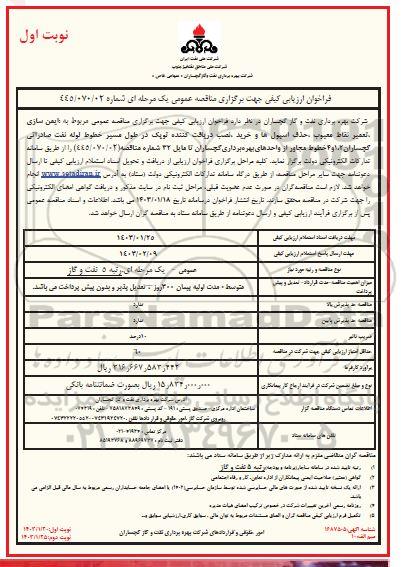 نوبت اول
شرکت ملی نفت ایران
شرکت ملی مناطق نفتخیز جنوب
شرکت بهره برداری نفت و گاز گچساران « سهامی خاص »
فراخوان ارزیابی کیفی جهت برگزاری مناقصه عمومی یک مرحله ای شماره ۴۴۵/۰۷۰/۰۲
شرکت بهره برداری نفت و گاز گچساران در نظر دارد فراخوان ارزیابی کیفی جهت برگزاری مناقصه عمومی مربوط به «ایمن سازی
،تعمیر نقاط معیوب ،حذف اسپول ها و خرید ،نصب دریافت کننده توپک در طول مسیر خطوط لوله نفت صادراتی
گچساران ۱،۲و۴خطوط مجاور از واحدهای بهره برداری گچساران تا مایل ۳۲ شماره مناقصه(۴۴۵/۰۷۰/۰۲) را از طریق سامانه
تدارکات الکترونیکی دولت برگزار نماید. کلیه مراحل برگزاری فراخوان ارزیابی از دریافت و تحویل اسناد استعلام ارزیابی کیفی تا ارسال
دعوتنامه جهت سایر مراحل مناقصه، از طریق درگاه سامانه تدارکات الکترونیکی دولت (ستاد) به آدرس www.setadiran.ir انجام
خواهد شد. لازم است مناقصه گران در صورت عدم عضویت قبلی، مراحل ثبت نام در سایت مذکور و دریافت گواهی امضای الکترونیکی
را جهت شرکت در مناقصه محقق سازند. تاریخ انتشار فراخوان در سامانه تاریخ ۱۴۰۳/۰۱/۱۸ می باشد. اطلاعات و اسناد مناقصه عمومی
پس از برگزاری فرآیند ارزیابی کیفی و ارسال دعوتنامه از طریق سامانه ستاد به مناقصه گران ارسال خواهد شد.
مهلت دریافت اسناد استعلام ارزیابی کیفی ۱۴۰۳/۰۱/۲۵
مهلت ارسال پاسخ استعلام ارزیابی کیفی ۱۴۰۳/۰۲/۰۹
نوع مناقصه و رتبه مورد نیاز عمومی - یک مرحله ای رتبه ۵ نفت و گاز
میزان اهمیت مناقصه- مدت قرارداد- تعدیل و پیش پرداخت متوسط- مدت اولیه پیمان ۳۰۰روز - تعدیل پذیر و بدون پیش پرداخت می باشد.
مناقصه حد پذیرش بالا ندارد
مناقصه حد پذیرش پایین ندارد
ضریب تاثیر ۱۰درصد
حداقل امتیاز ارزیابی کیفی جهت شرکت در مناقصه ۶۰
برآورد کارفرما ۳۱۶,۶۶۷,۵۸۳,۴۴۴ ریال
نوع و مبلغ تضمین شرکت در فرآیند ارجاع کار پیمانکاری ۱۵,۸۳۴,۰۰۰,۰۰۰ ریال بصورت ضمانتنامه بانکی
اطلاعات تماس دستگاه مناقصه گزار
تلفن های سامانه ستاد
مناقصه گران متقاضی ملزم به ارائه مدارک زیر از طریق سامانه ستاد می باشند:
۱) رتبه تایید شده در سامانه ساجار
۲) گواهی (معتبر) صلاحیت ایمنی پیمانکاران از اداره تعاون، کار و رفاه اجتماعی
۴) روزنامه رسمی آخرین تغییرات شرکت در خصوص ترکیب اعضای هیأت مدیره
شناسه آگهی: ۱۶۸۷۵۰۵
امور حقوقی و قراردادهای شرکت بهره برداری نفت و گاز گچساران
نوبت اول: ۱۴۰۳/۱/۲۰
نوبت دوم: ۱۴۰۳/۱/۲۵